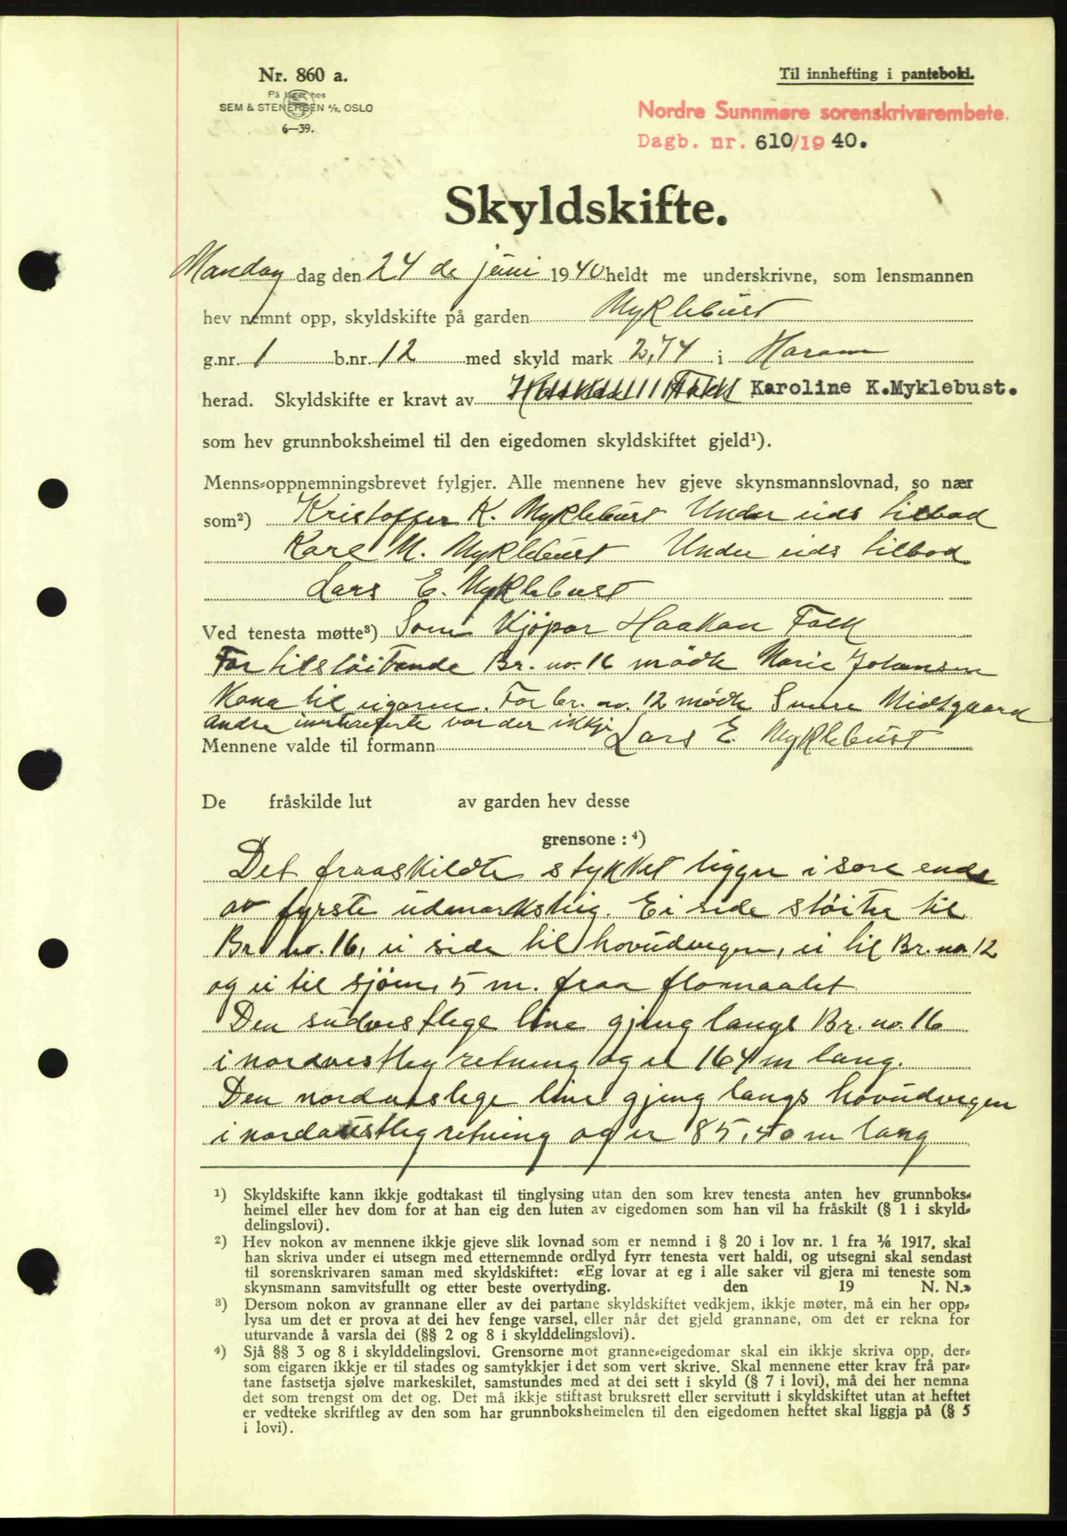 Nr. 860 a.
På lager hos
SEM & STENERSEN A/S, OSLO
6—39.
Til innhefting i panteboki.
Nordre Sunnmøre sorenskrivarembete.
Dagb. nr. 610/1940.
Skyldskifte.
Mandag dag den 24 de juni 1940 heldt me underskrivne, som lensmannen
hev nemnt opp, skyldskifte på garden Myklebust
g.nr. 1 b.nr. 12 med skyld mark 2,74 i Haram
herad. Skyldskifte er kravt av Karoline K.Myklebust.
som hev grunnboksheimel til den eigedomen skyldskiftet gjeld¹).
Menns-oppnemningsbrevet fylgjer. Alle mennene hev gjeve skynsmannslovnad, so nær
som²) Kristoffer K. Myklebust Under eids tilbod
Karl M. Myklebust Under eids tilbod
Lars E. Myklebust
Ved tenesta møtte³) Som Kjöpar Haakan Falk
For tilstöitande Br. no. 16 mödte Marie Johansen
Kona til eigaren. For br. no. 12 mödte Sverre Midtgaard
andre var der ikkje
Mennene valde til formann Lars E. Myklebust
De fråskilde lut av garden hev desse
grensone : ⁴)
Det fraaskildte stykket ligger i søre ende
av fyrste udmarksteig. Ei side stöiter til
Br. no. 16, ei side til hovudvegen, ei til Br. no 12
og ei til sjöen, 5 m. fraa flomaalet
Den sudvestlege line gjeng langs Br. no. 16
i nordvestleg retning og er 164 m lang.
Den nordvestlege line gjeng langs hovudvegen
i nordaustleg retning og er 85,40 m lang
¹) Skyldskifte kann ikkje godtakast til tinglysing utan den som krev tenesta anten hev grunnboks-
heimel eller hev dom for at han eig den luten av eigedomen som han vil ha fråskilt (§ 1 i skyld-
delingslovi).
²) Hev nokon av mennene ikkje gjeve slik lovnad som er nemnd i § 20 i lov nr. 1 fra ⅙ 1917, skal
han skriva under ei utsegn med etternemnde ordlyd fyrr tenesta vert haldi, og utsegni skal sendast
til sorenskrivaren saman med skyldskiftet: «Eg lovar at eg i alle saker vil gjera mi teneste som
skynsmann samvitsfullt og etter beste overtyding. den 19 N. N.»
³) Dersom nokon av grannane eller av dei partane skyldskiftet vedkjem, ikkje møter, må ein her opp-
lysa um det er prova at dei hev fenge varsel, eller når det gjeld grannane, om det er rekna for
uturvande å varsla dei (§§ 2 og 8 i skylddelingslovi).
⁴) Sjå §§ 3 og 8 i skylddelingslovi. Grensorne mot granne-eigedomar skal ein ikkje skriva opp, der-
som eigaren ikkje er til stades og samtykkjer i det som vert skrive. Skal mennene etter krav frå par-
tane fastsetja sjølve markeskilet, samstundes med at dei sett i skyld (§ 7 i lovi), må dei her nemna
det som trengst om det og. Det må ikkje stiftast bruksrett eller servitutt i skyldskiftet utan at heftet
er vedteke skriftleg av den som har grunnboksheimelen til den eigedomen heftet skal liggja på (§ 5
i lovi).